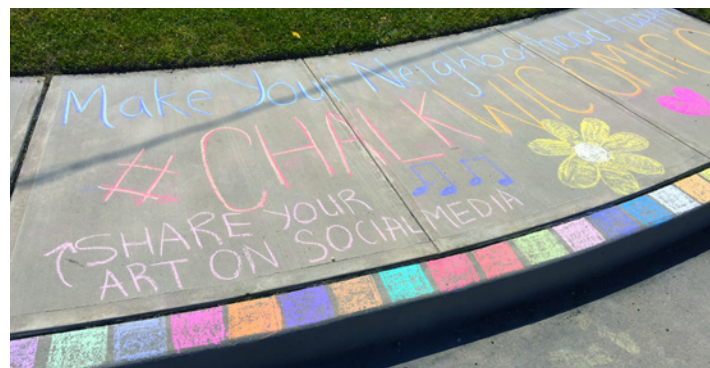 Make Your Neighborhood
#CHALKWICOMICO
SHARE YOUR
ART ON SOCIAL MEDIA